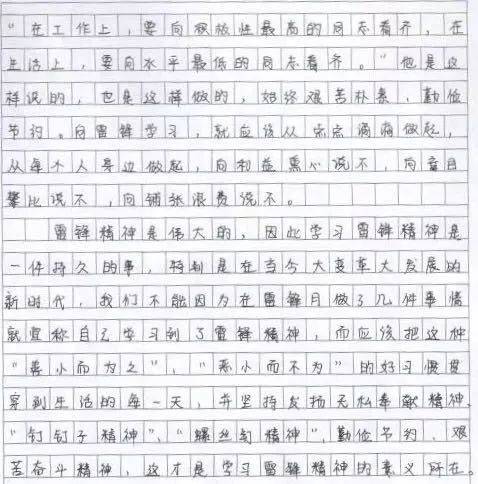 “在工作上，要向积极性最高的同志看齐，在
生活上，要向水平最低的同志看齐。”他是这
样说的，也是这样做的，始终艰苦朴素，勤俭
节约。向雷锋学习，就应该从点点滴滴做起，
从每个人身边做起，向利益熏心说不，向盲目
攀比说不，向铺张浪费说不。
雷锋精神是伟大的，因此学习雷锋精神是
一件持久的事，特别是在当今大变革大发展的
新时代，我们不能因为在雷锋月做了几件事情
就宣称自己学习到了雷锋精神，而应该把这种
“善小而为之”，“恶小而不为”的好习惯贯
穿到生活的每一天，并坚持发扬无私奉献精神、
“钉钉子精神”、“螺丝钉精神”，勤俭节约、艰
苦奋斗精神，这才是学习雷锋精神的意义所在。